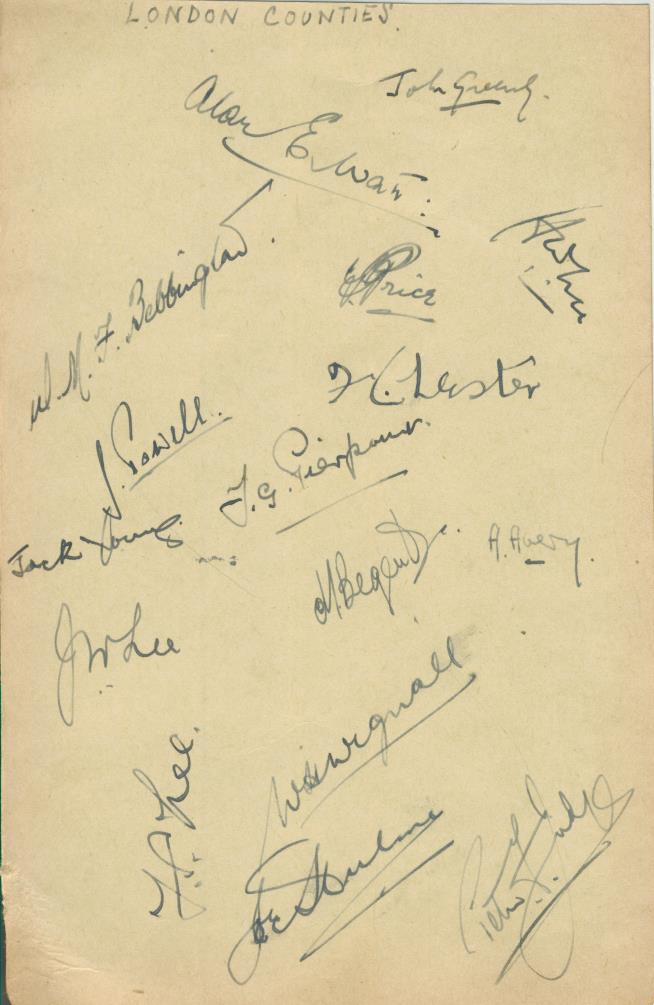 LONDON COUNTIES.
John Greenly.
Alan E. Watt
W. M. F. Bebbington.
Price
F. Chester
J. Powell.
F. G. Pierpoint.
Jack Young
A. Avery.
J W Lee
W H Wignall
F. S. Lee.
Joe Hulme
Peter F. Judge